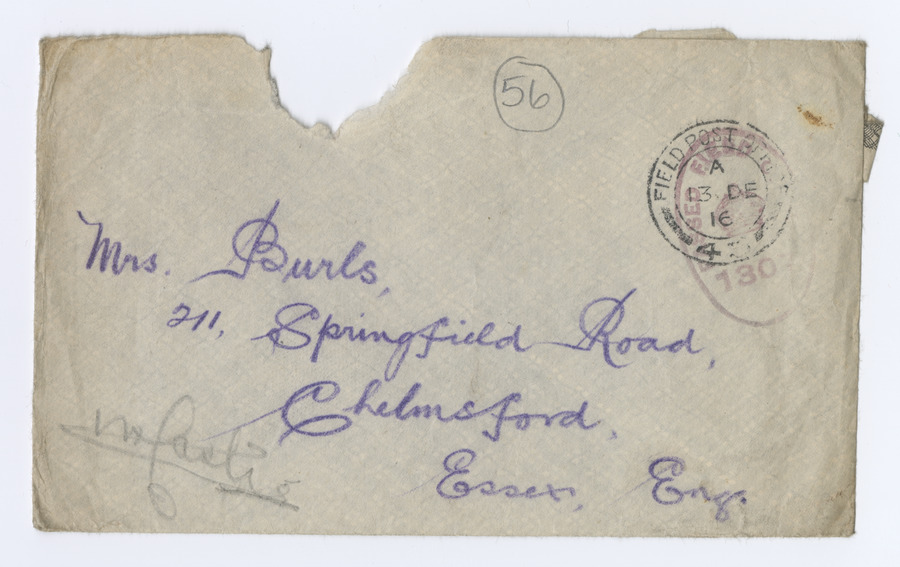 56
FIELD POST
A
13 DE
16
4
130
Mrs. Burls,
211, Springfield Road,
Chelmsford,
Essex, Eng.